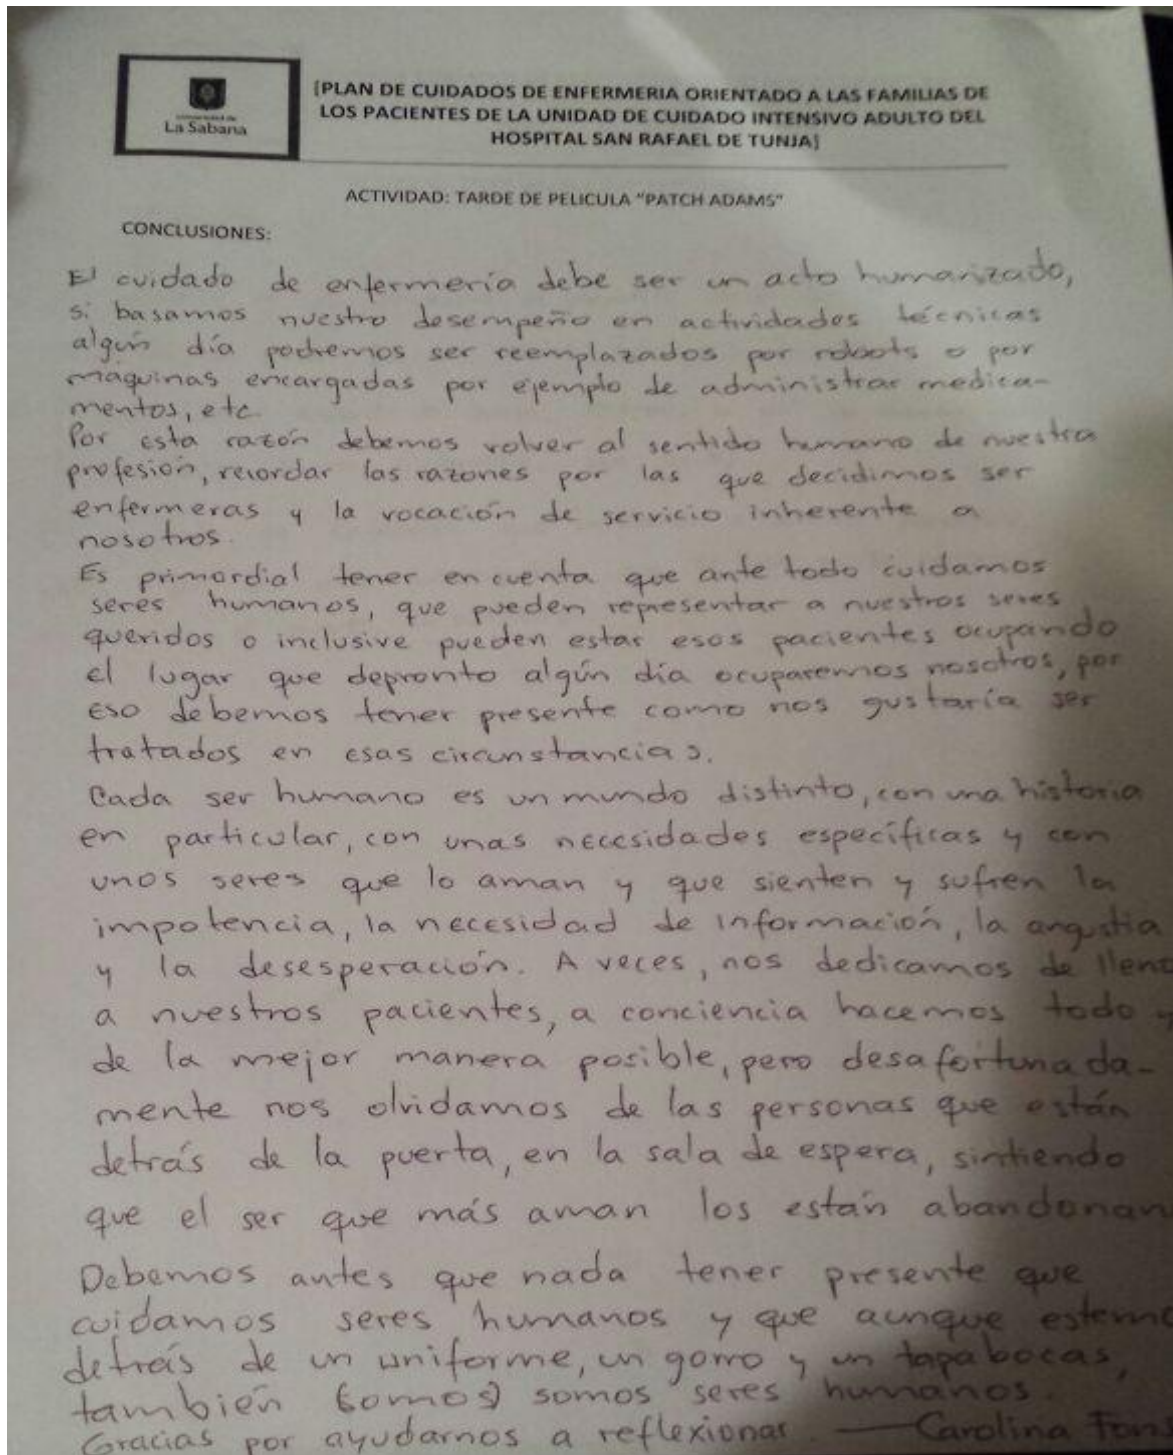 Universidad de
La Sabana
[PLAN DE CUIDADOS DE ENFERMERIA ORIENTADO A LAS FAMILIAS DE
LOS PACIENTES DE LA UNIDAD DE CUIDADO INTENSIVO ADULTO DEL
HOSPITAL SAN RAFAEL DE TUNJA]
ACTIVIDAD: TARDE DE PELICULA "PATCH ADAMS"
CONCLUSIONES:
El cuidado de enfermería debe ser un acto humanizado,
si basamos nuestro desempeño en actividades técnicas
algún día podremos ser reemplazados por robots o por
maquinas encargadas por ejemplo de administrar medica-
mentos, etc.
Por esta razón debemos volver al sentido humano de nuestra
profesión, recordar las razones por las que decidimos ser
enfermeras y la vocación de servicio inherente a
nosotros.
Es primordial tener en cuenta que ante todo cuidamos
seres humanos, que pueden representar a nuestros seres
queridos o inclusive pueden estar esos pacientes ocupando
el lugar que depronto algún día ocuparemos nosotros, por
eso debemos tener presente como nos gustaría ser
tratados en esas circunstancias.
Cada ser humano es un mundo distinto, con una historia
en particular, con unas necesidades específicas y con
unos seres que lo aman y que sienten y sufren la
impotencia, la necesidad de información, la angustia
y la desesperación. A veces, nos dedicamos de llen
a nuestros pacientes, a conciencia hacemos todo y
de la mejor manera posible, pero desafortunada-
mente nos olvidamos de las personas que están
detrás de la puerta, en la sala de espera, sintiendo
que el ser que más aman los están abandonan
Debemos antes que nada tener presente que
cuidamos seres humanos y que aunque estemo
detrás de un uniforme, un gorro y un tapabocas,
también (somos) somos seres humanos.
Gracias por ayudarnos a reflexionar. — Carolina